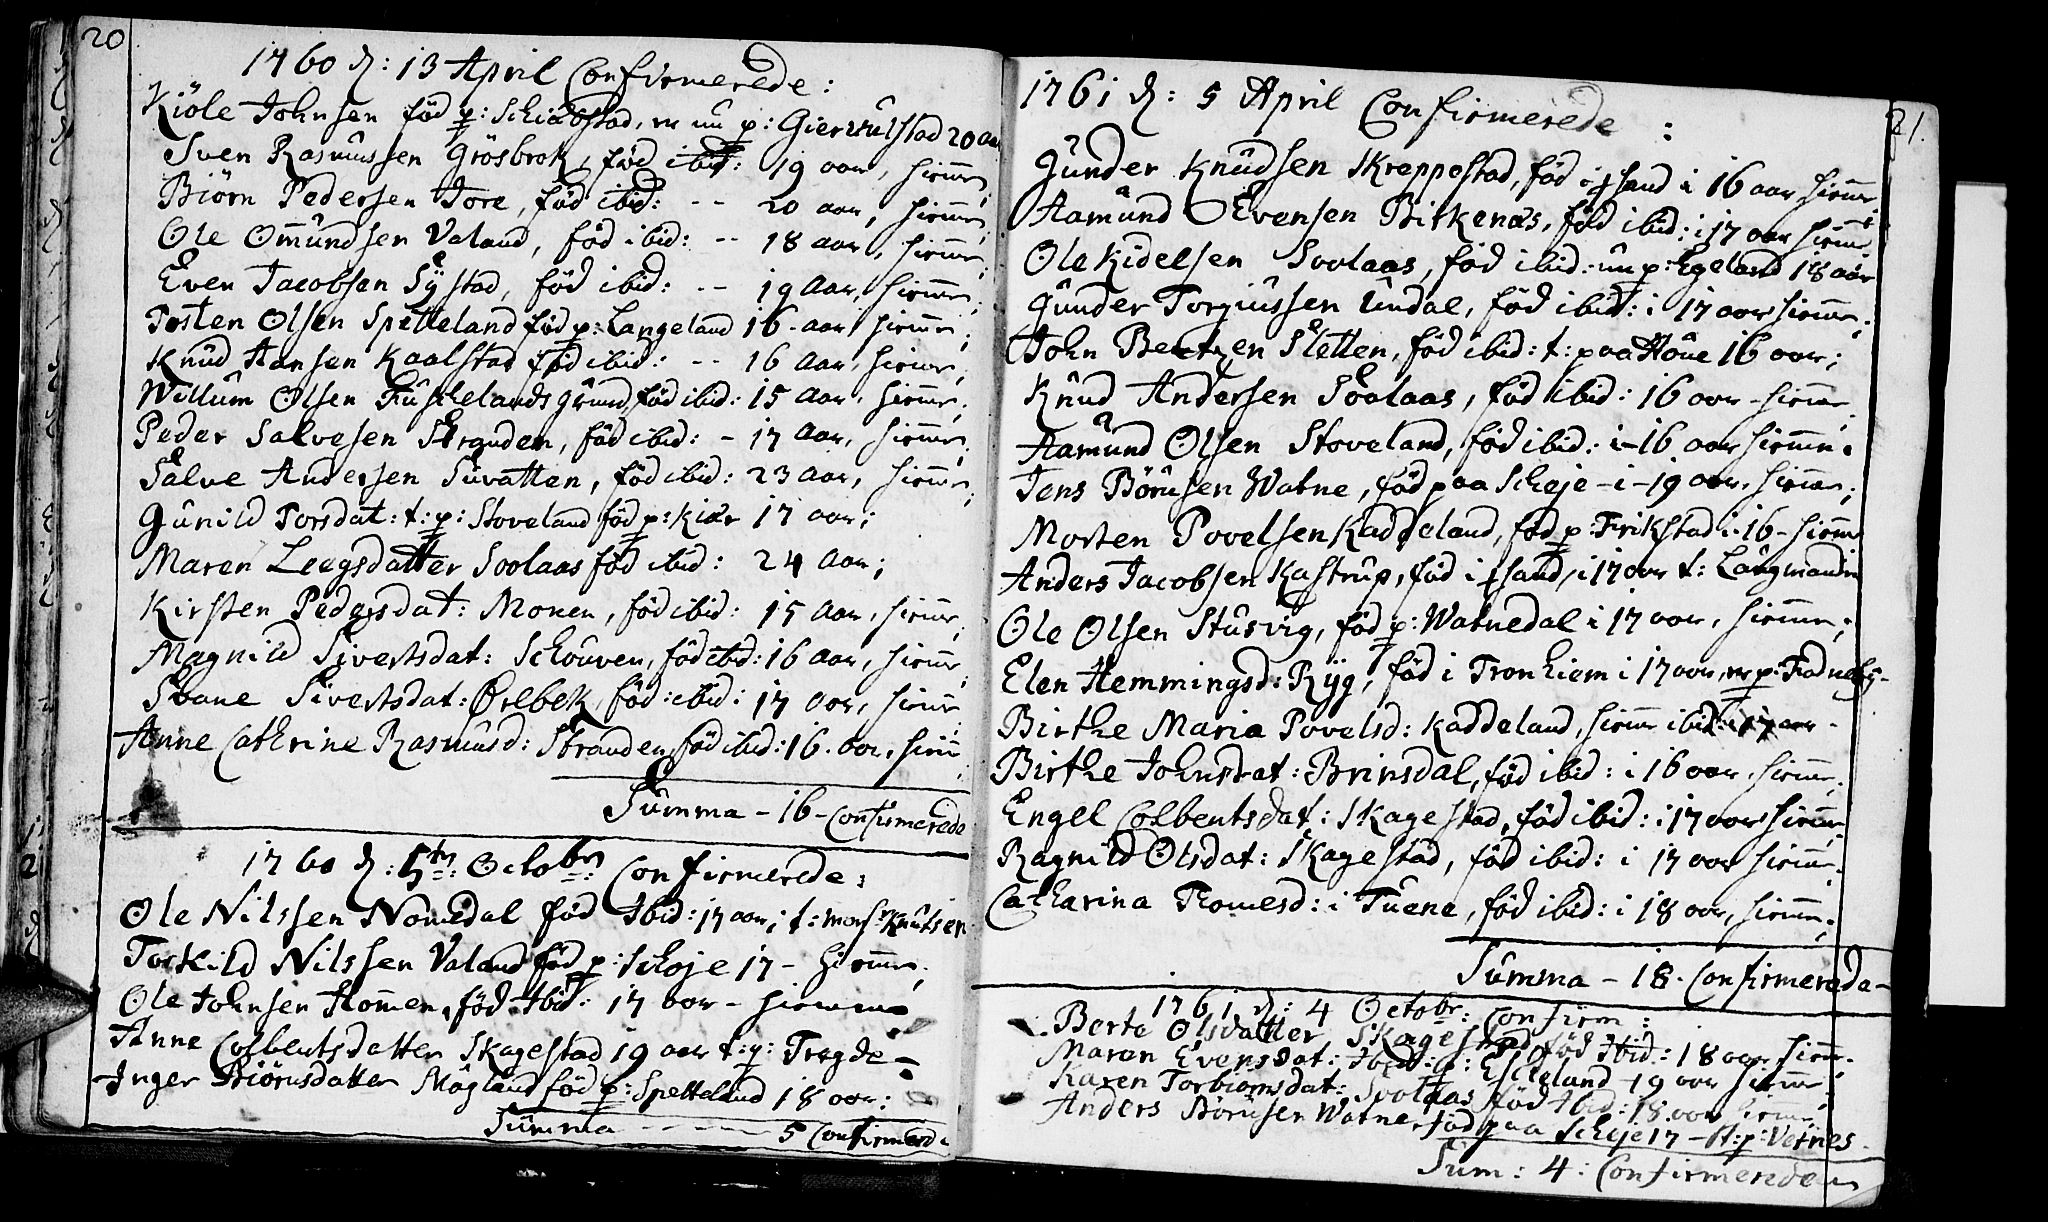 20
1760 d: 13 April Confirmerede:
Kiöle Johnsen föd p: SchiaBstad, er nu p: Gierwulstad 20 aar
Sven Rasmussen Grösbrok, föd ibid: 19 aar, hiemme;
Biörn Pedersen Tore, föd ibid: -- 20 aar, hiemme;
Ole Omundsen Valand, föd ibid: -- 18 aar, hiemme;
Even Jacobsen Systad, föd ibid: -- 19 Aar, hiemme;
Tosten Olsen Spetteland föd p: Langeland 16 - aar hiemme;
Knud Hansen Kaalstad föd ibid: -- 16 Aar, hiemme;
Willum Olsen Fuskelands grund, föd ibid: 15 Aar, hiemme;
Peder Salvesen Stranden, föd ibid: - 17 Aar, hiemme;
Salve Andersen Suvatten, föd ibid: 23 aar, hiemme;
Gunild Torsdat: t: p: Stoveland föd p: Kiær 17 aar;
Maren Leegsdatter Soolaas föd ibid: 24 Aar;
Kirsten Pedersdat: Monen, föd ibid: 15 Aar, hiemme;
Magnild Sivertsdat: Schouven, föd ibid: 16 Aar, hiemme;
Sivertsdat: Örebek, föd: ibid: 17 aar, hiemme;
Anne Cathrine Rasmusd: Stranden, föd ibid: 16. aar, hiemme;
Summa - 16 - Confirmerede
1760 d: 5te: Octobr: Confirmerede:
Ole Nilssen Nomedal föd Ibid: 17 aar; t: mons: Knutsen
Torkild Nilssen Valand föd p: Schoje 17 - hiemme;
Ole Johnsen Homen, föd Ibid: 17 aar - hiemme
Anne Colbentsdatter Skagestad 19 aar t: p: Tregde -
Inger Biörnsdatter Mögland föd p: Spetteland 18 aar:
Summa - - - - - 5 Confirmerde
21.
1761 d: 5 April Confirmerede:
Gunder Knudsen Skreppestad, föd i Xsand i 16 aar hiemme
Aamund Evensen Birkenæs, föd ibid: i 17 aar hiemme
Ole Kidelsen Soolaas, föd ibid: nu p: Egeland 18 aar
Gunder Torgiussen Undal, föd ibid: i 17 aar hiemme;
John Bentzen Sletten, föd ibid: t: paa Höue 16 aar;
Knud Andersen Soolaas, föd ibid: 16 aar - hiemme
Aamund Olsen Stoveland, föd ibid: i - 16 aar hiemme;
Jens Börusen Watne, föd paa Schoje - i - 19 aar, hiemme;
Morten Povelsen Kaddeland, föd p: Frikstad i 16 - hiemme
Anders Jacobsen Kastrup, föd i Xsand, i 17 aar t: Laugmandin
Ole Olsen Stusvig, föd p: Watnedal i 17 aar, hiemme;
Elen Hemmingsd: Ryg, föd i Tronhiem i 17 aar, er p: Fodneby -
Birthe Maria Povelsd: Kaddeland, hiemme ibid: 17 aar -
Birthe Johnsdat: Brinsdal, föd ibid: i 16 aar, hiemme;
Engel Colbentsdat: Skagestad, föd ibid: i 17 aar hiemme;
Ragnild Olsdat: Skagestad, föd ibid: i 17 aar hiemme;
Catharina Thomesd: i Tuene, föd ibid: i 18 aar, hiemme;
Summa - 18. Confirmerede -
1761 d: 4 Octobr: Confirm:
Berte Olsdatter Skagestad föd Ibid: 18 aar hiemme;
Maren Evensdat: Ibid: p: Eskeland - 19 aar hiemme;
Karen Torbiornsdat: Soolaas föd Ibid: 18 aar hiemme;
Anders Börusen Watne, föd paa Schoje 17 - H: p: Vetnes -
Sum: 4: Confirmerede